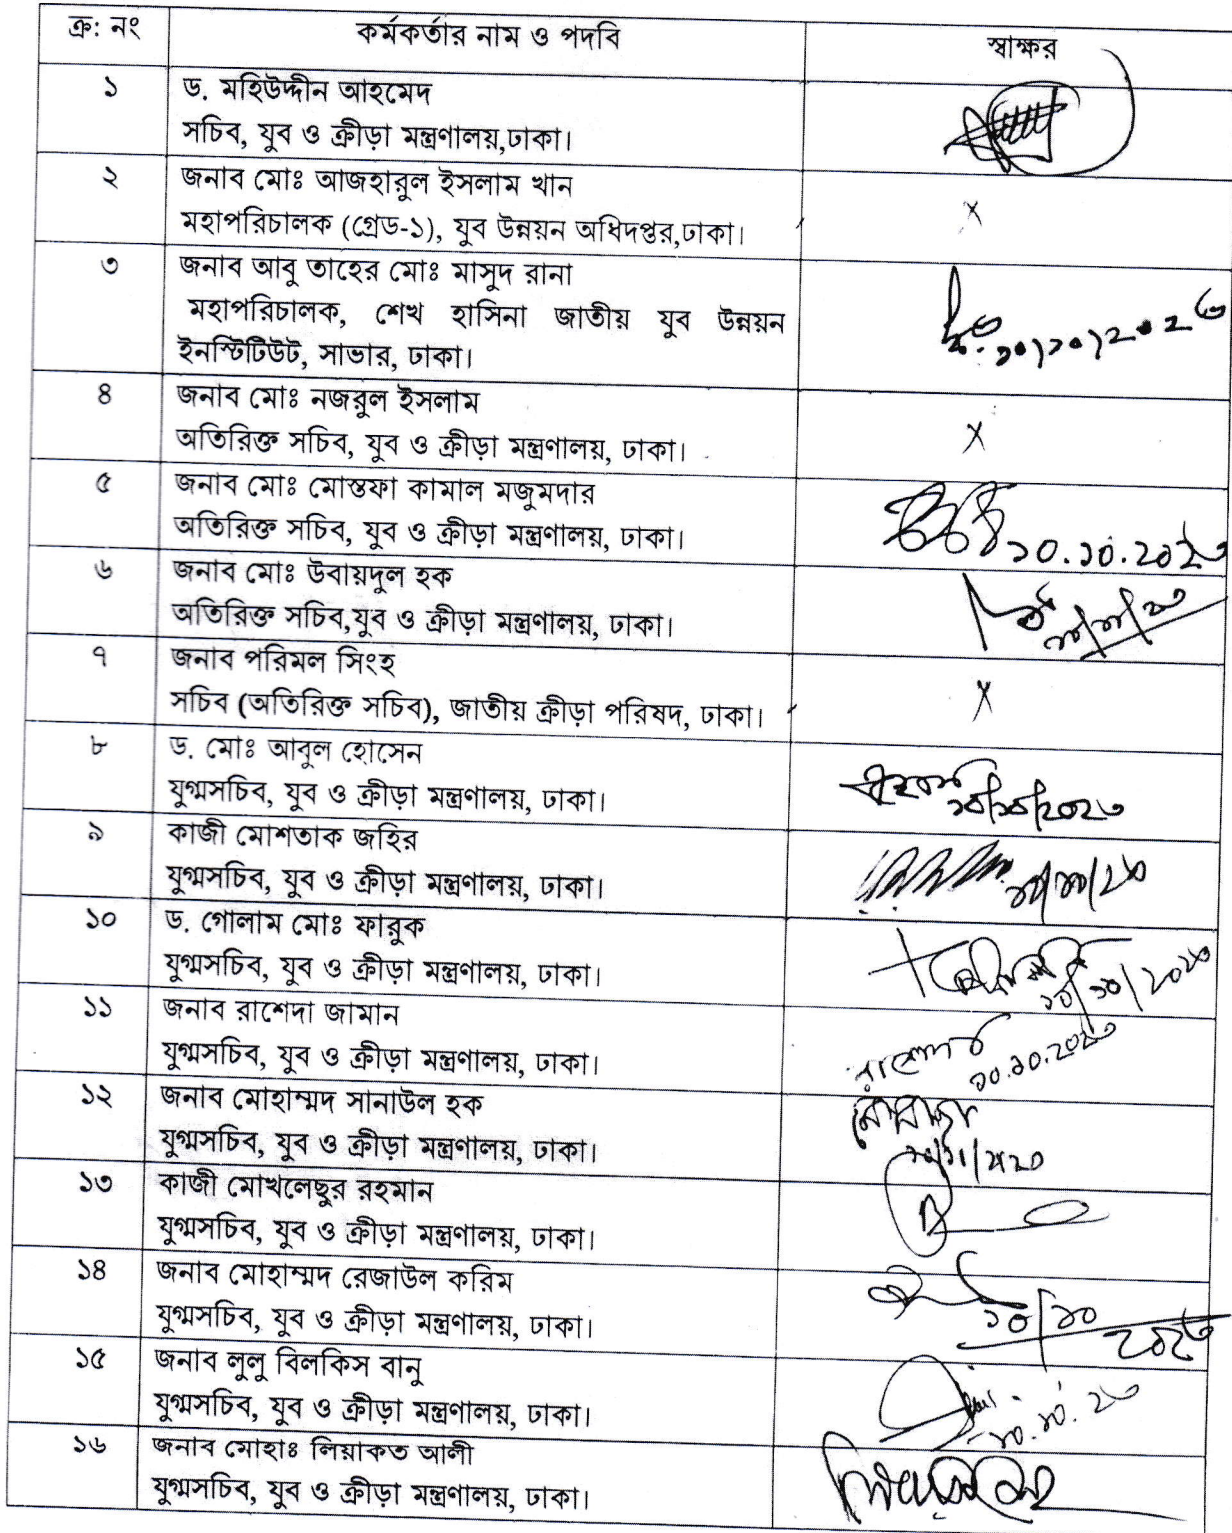 ক্র: নং কর্মকর্তার নাম ও পদবি স্বাক্ষর
১ ড. মহিউদ্দীন আহমেদ
সচিব, যুব ও ক্রীড়া মন্ত্রণালয়,ঢাকা।
২ জনাব মোঃ আজহারুল ইসলাম খান
মহাপরিচালক (গ্রেড-১), যুব উন্নয়ন অধিদপ্তর,ঢাকা। x
৩ জনাব আবু তাহের মোঃ মাসুদ রানা
মহাপরিচালক, শেখ হাসিনা জাতীয় যুব উন্নয়ন ১০/১০/২০২৩
ইনস্টিটিউট, সাভার, ঢাকা।
৪ জনাব মোঃ নজরুল ইসলাম
অতিরিক্ত সচিব, যুব ও ক্রীড়া মন্ত্রণালয়, ঢাকা। x
৫ জনাব মোঃ মোস্তফা কামাল মজুমদার
অতিরিক্ত সচিব, যুব ও ক্রীড়া মন্ত্রণালয়, ঢাকা। ১০.১০.২০২৩
৬ জনাব মোঃ উবায়দুল হক
অতিরিক্ত সচিব,যুব ও ক্রীড়া মন্ত্রণালয়, ঢাকা। ১০/১০/২৩
৭ জনাব পরিমল সিংহ
সচিব (অতিরিক্ত সচিব), জাতীয় ক্রীড়া পরিষদ, ঢাকা। x
৮ ড. মোঃ আবুল হোসেন
যুগ্মসচিব, যুব ও ক্রীড়া মন্ত্রণালয়, ঢাকা। ১০/১০/২০২৩
৯ কাজী মোশতাক জহির
যুগ্মসচিব, যুব ও ক্রীড়া মন্ত্রণালয়, ঢাকা। ১০/১০/২৩
১০ ড. গোলাম মোঃ ফারুক
যুগ্মসচিব, যুব ও ক্রীড়া মন্ত্রণালয়, ঢাকা। ১০/১০/২০২৩
১১ জনাব রাশেদা জামান
যুগ্মসচিব, যুব ও ক্রীড়া মন্ত্রণালয়, ঢাকা। ১০.১০.২০২৩
১২ জনাব মোহাম্মদ সানাউল হক
যুগ্মসচিব, যুব ও ক্রীড়া মন্ত্রণালয়, ঢাকা।
১৩ কাজী মোখলেছুর রহমান
যুগ্মসচিব, যুব ও ক্রীড়া মন্ত্রণালয়, ঢাকা।
১৪ জনাব মোহাম্মদ রেজাউল করিম
যুগ্মসচিব, যুব ও ক্রীড়া মন্ত্রণালয়, ঢাকা। ১০/১০ ২০২৩
১৫ জনাব লুলু বিলকিস বানু
যুগ্মসচিব, যুব ও ক্রীড়া মন্ত্রণালয়, ঢাকা। ১০.১০.২৩
১৬ জনাব মোহাঃ লিয়াকত আলী
যুগ্মসচিব, যুব ও ক্রীড়া মন্ত্রণালয়, ঢাকা।